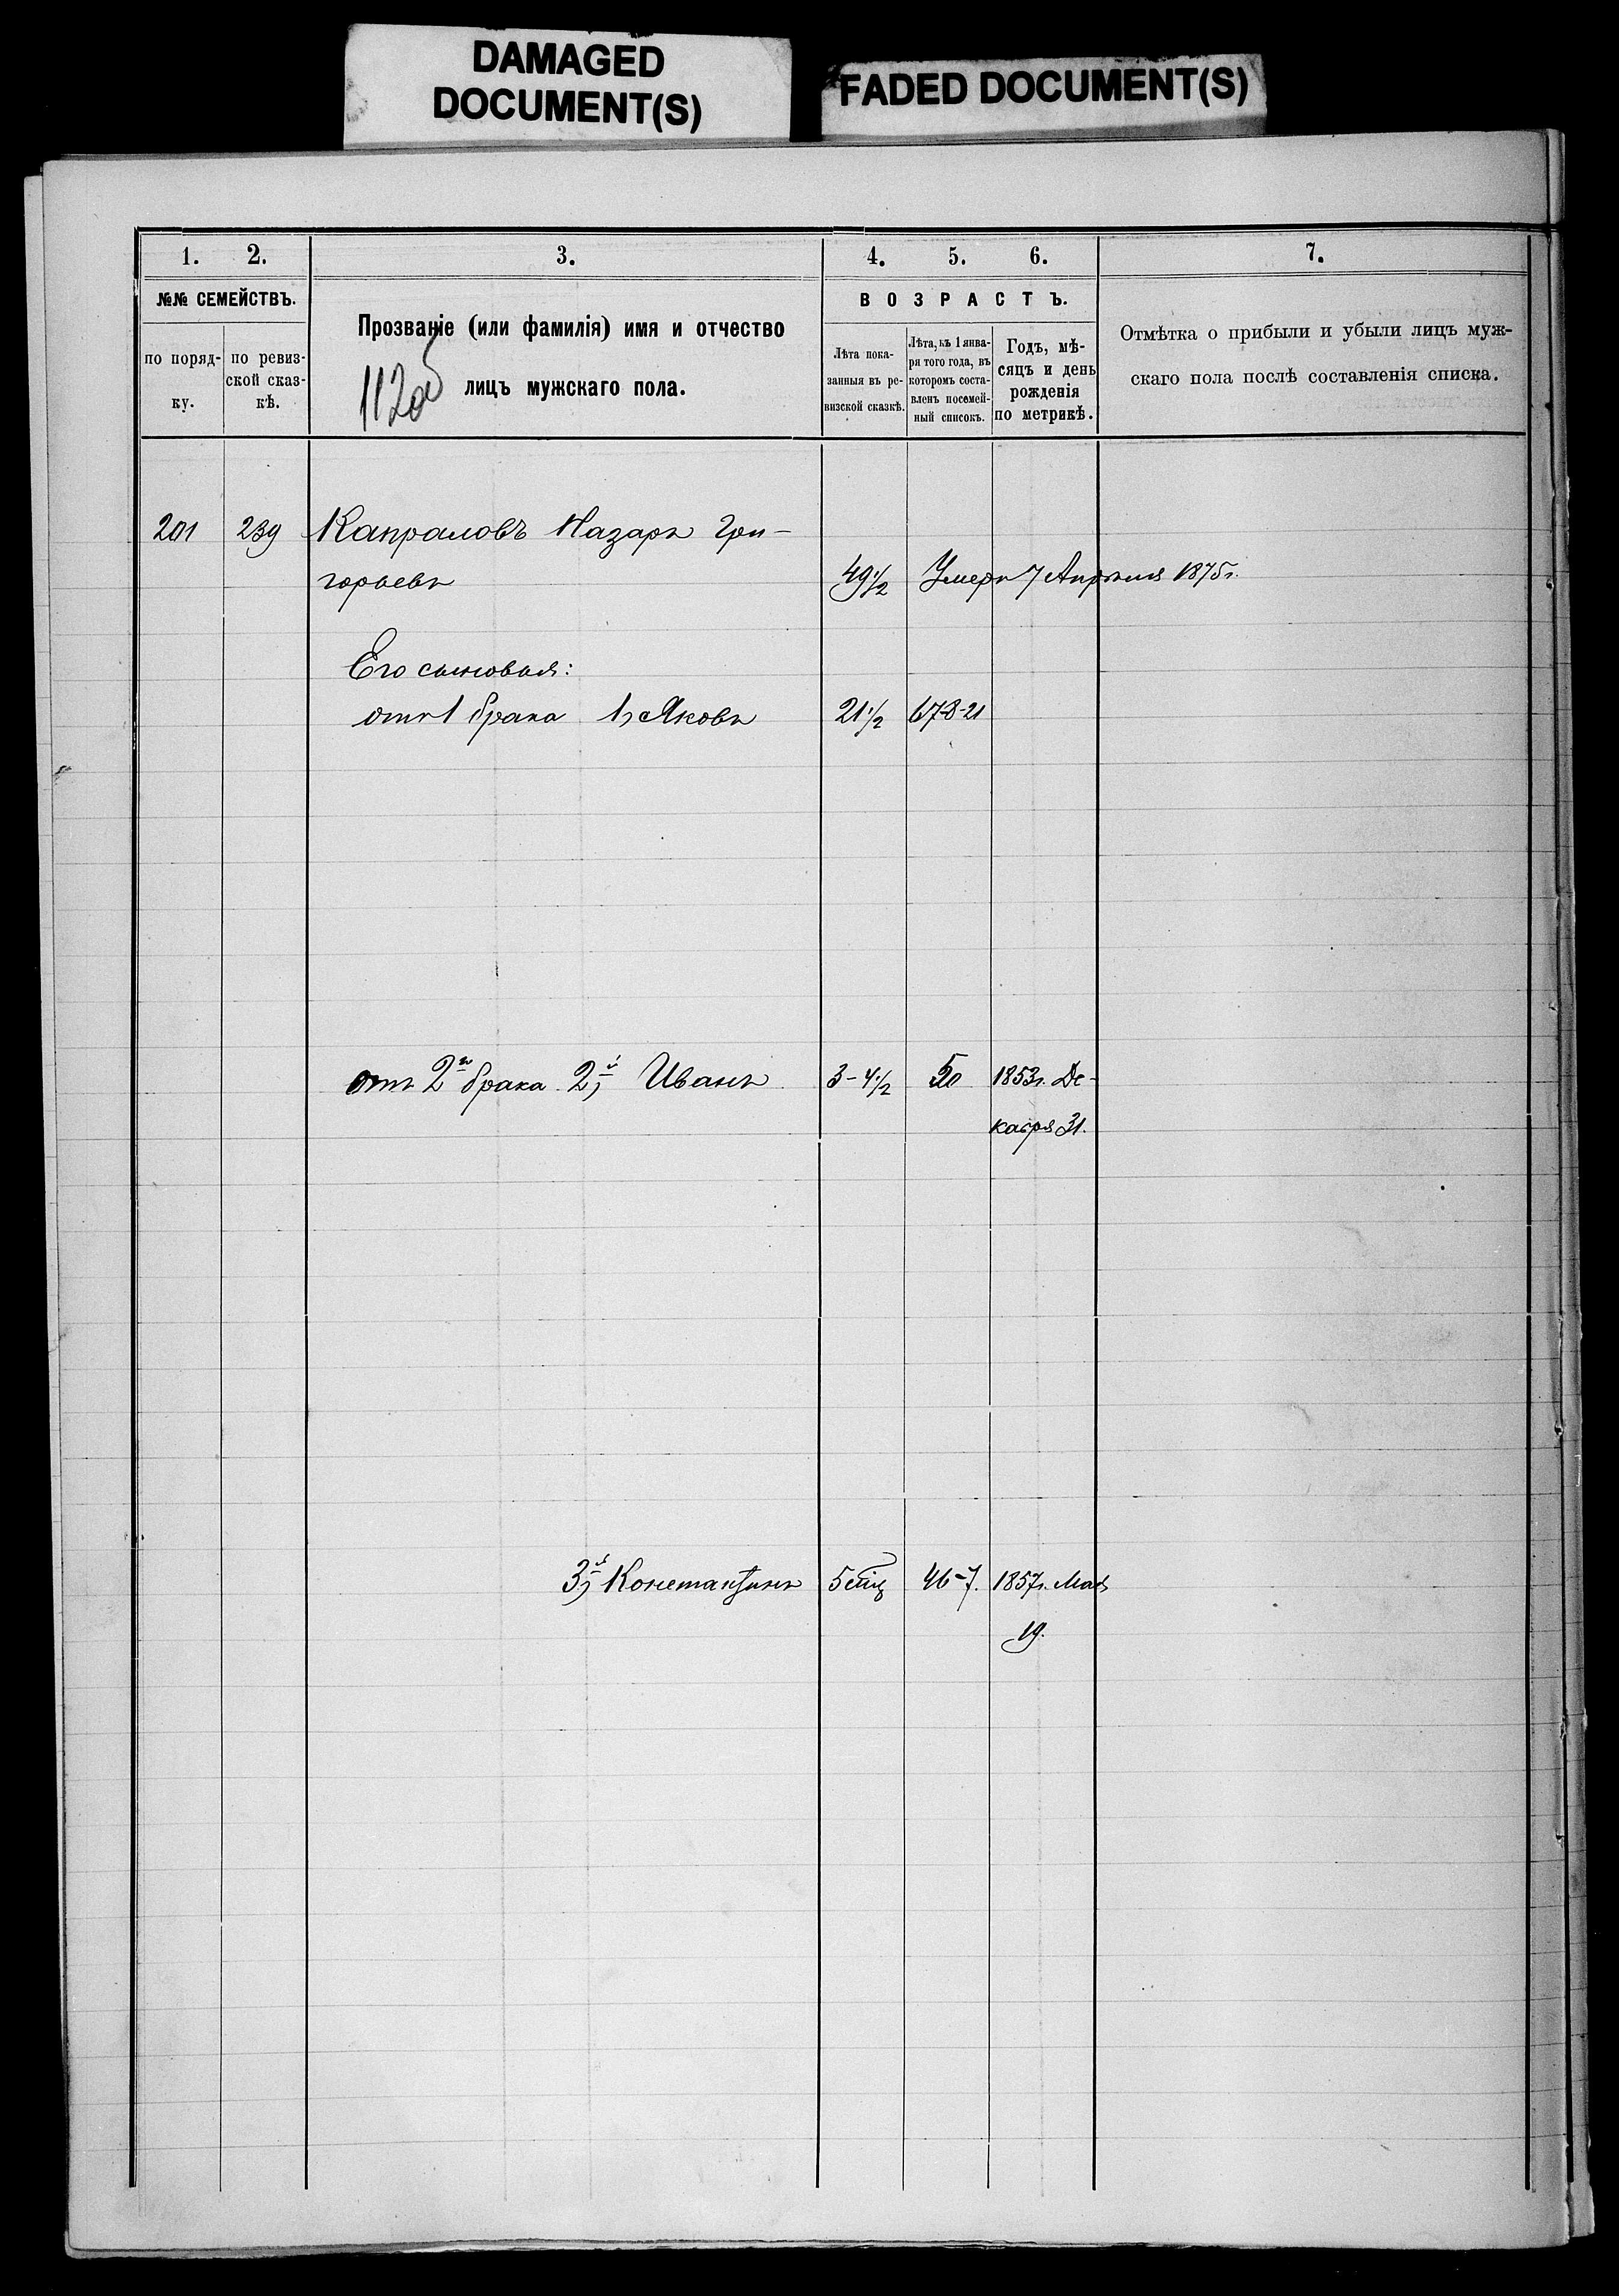 DAMAGED
DOCUMENT(S)
FADED DOCUMENT(S)
1. 2. 3. 4. 5. 6. 7.
№№ СЕМЕЙСТВЪ.
по поряд-
ку.
по ревиз-
ской сказ-
кѣ.
Прозваніе (или фамилія) имя и отчество
лицъ мужскаго пола.
112об
ВОЗРАСТЪ.
Лѣта пока-
занныя въ ре-
визской сказкѣ.
Лѣта, къ 1 янва-
ря того года, въ
которомъ соста-
вленъ посемей-
ный списокъ.
Годъ, мѣ-
сяцъ и день
рожденія
по метрикѣ.
Отмѣтка о прибыли и убыли лицъ муж-
скаго пола послѣ составленія списка.
201 239 Капраловъ Назаръ Гри-
горьевъ 49½ Умеръ 7 Апрѣля 1875г.
Его сыновья:
отъ 1 брака 1, Яковъ 21½
отъ 2го брака 2й, Иванъ 3-4½ 1853г. Де-
кабря 31.
3й, Константинъ 46-7. 1857г. Мая
19.